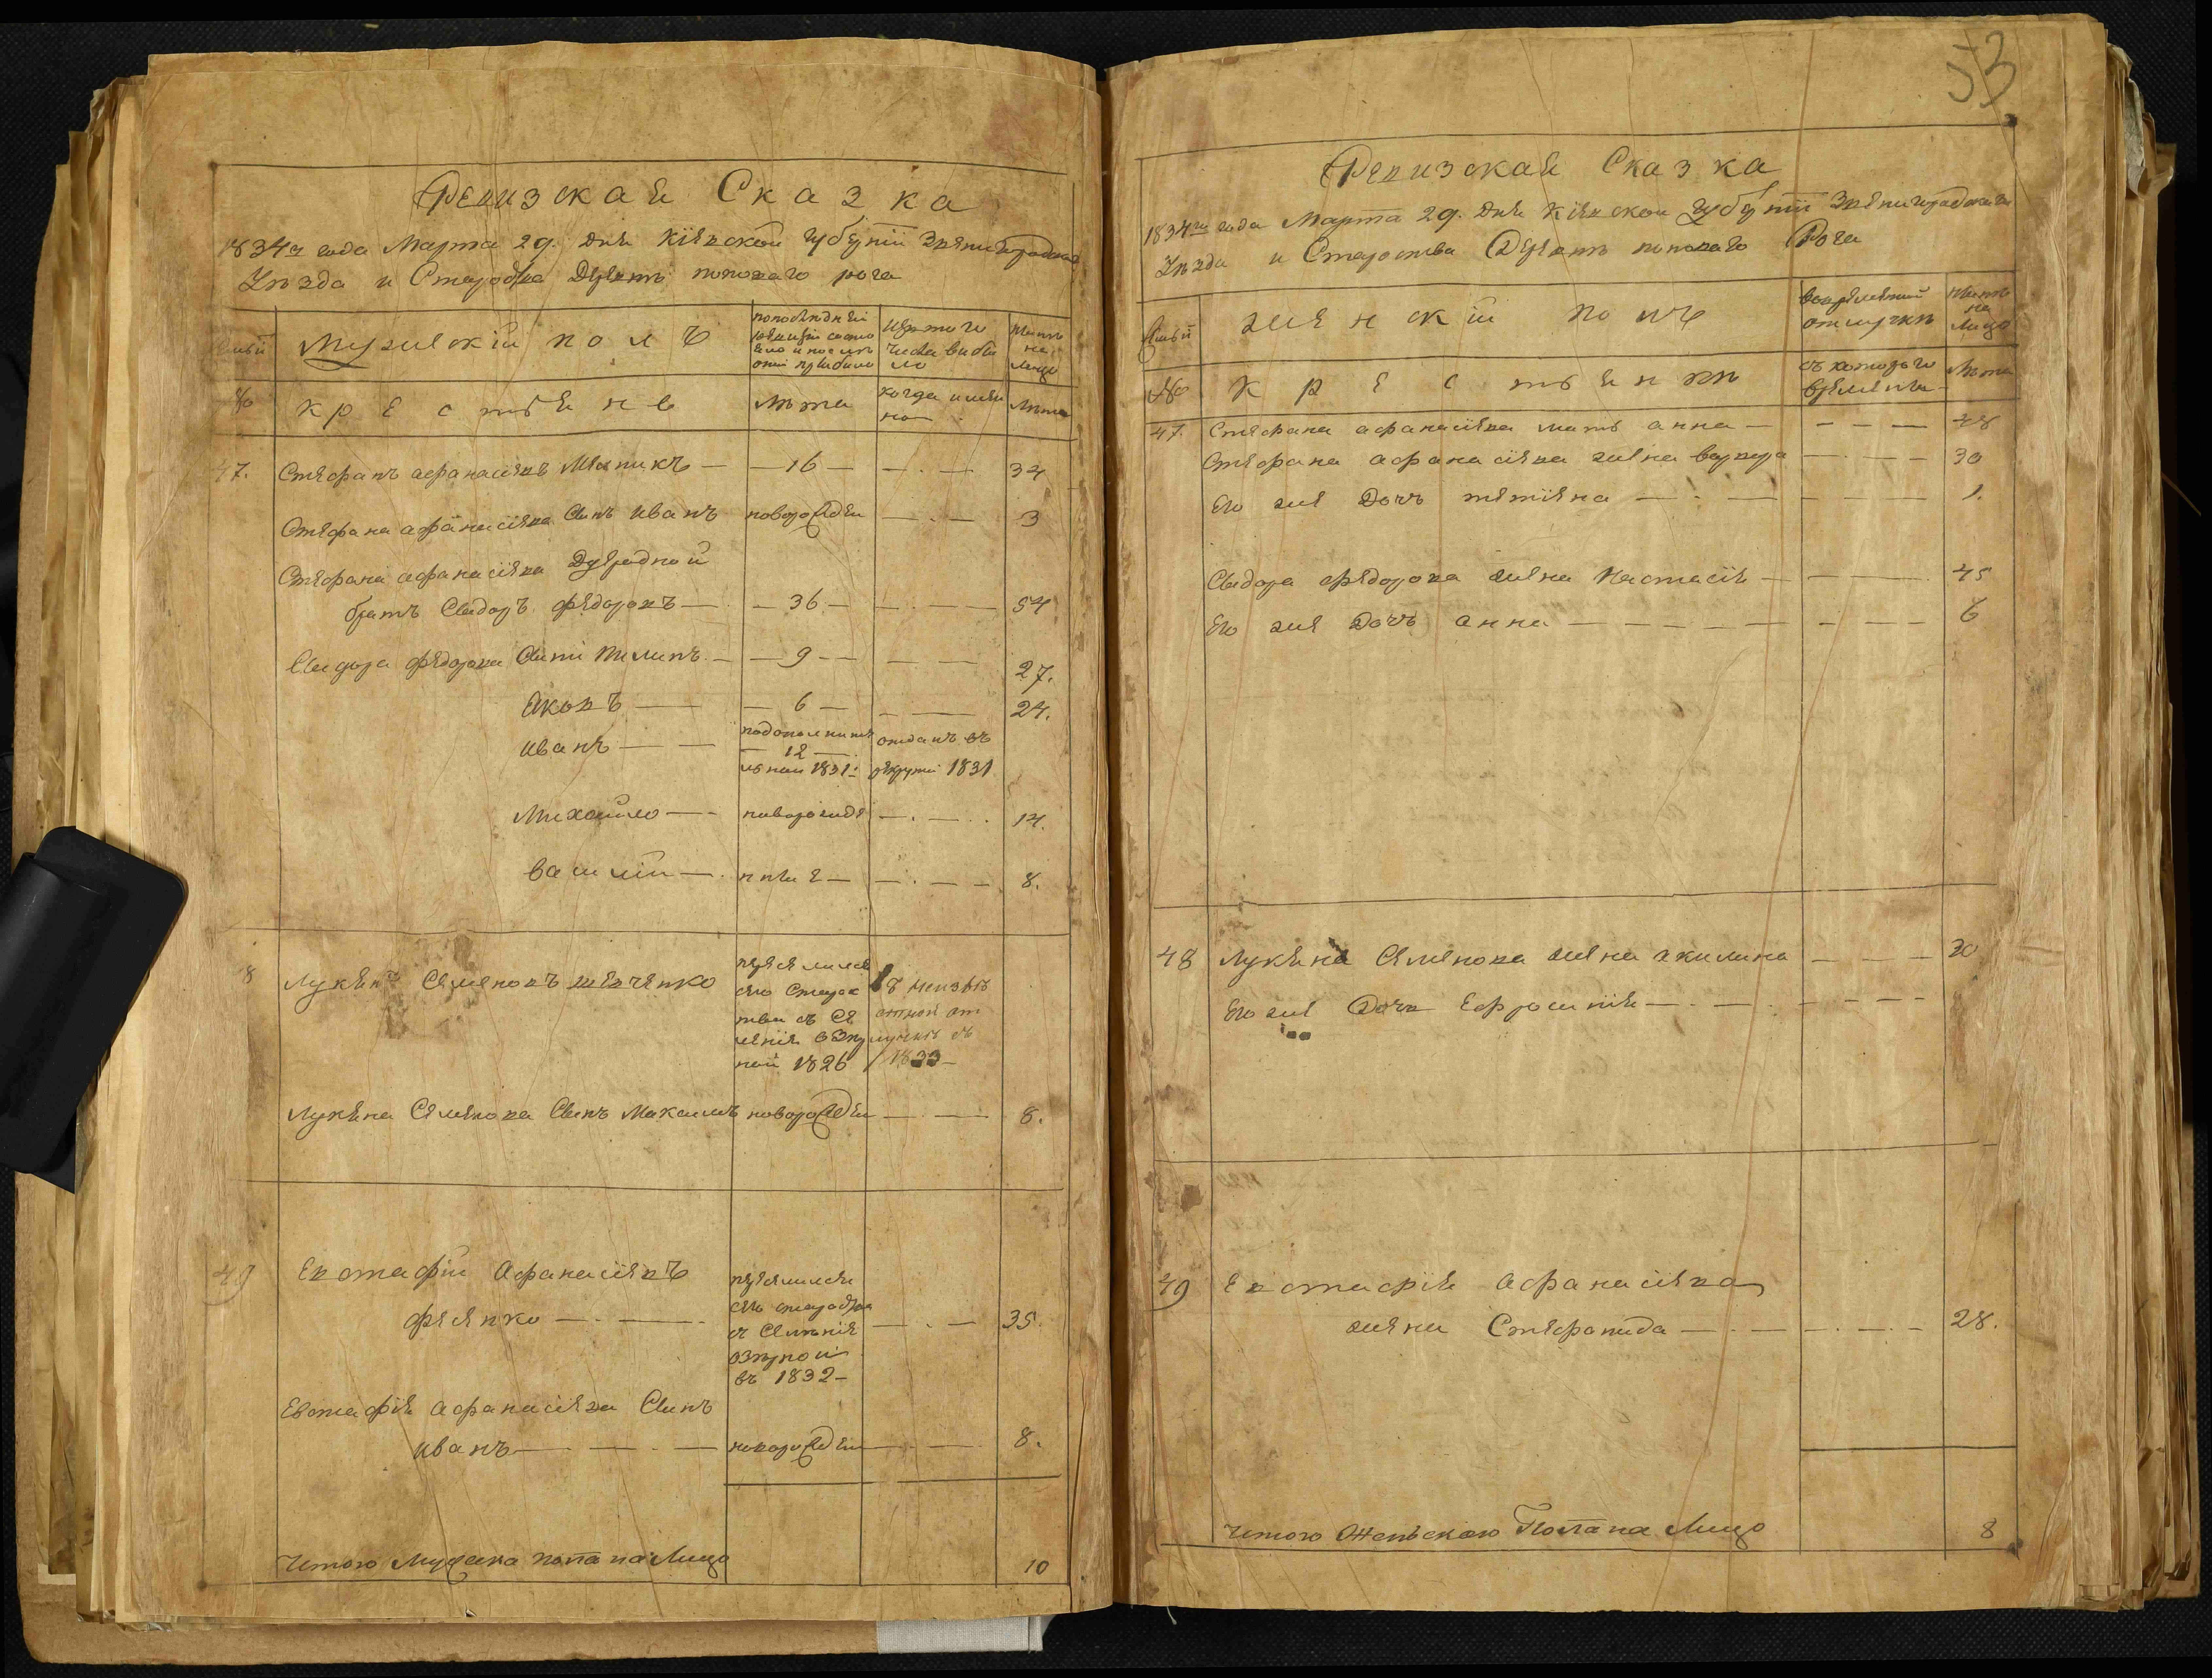 Ревизская Сказка
1834го года Марта 29. дня Кіевской губерніи Звенигородскаго
Уезда и Староства Деревнѣ поповаго рога
Семьи
Мужискій полъ
по последней ревизіи состояло и после оной прибыло
изъ того числа выбыло
ныне на лицо
№
крестьянъ
лѣта
когда именно
лѣта
47. Стефанъ афанасіевъ Мелникъ — 16 — — 34
Стефана афанасіева Синъ иванъ новорожден — 3
Стефана афанасіева Двуродной
братъ Сидоръ федоровъ — 36 — — 54
Сидора федорова Сини Пилипъ — 9 — — 27.
Яковъ — 6 — — 24.
иванъ — — 12 — 1831: отданъ въ рекруты 1831
Михайло — новорожде — 14.
василій — — 8.
8 Лукянъ Семеновъ шевченко
переселился
сего Старо
ства съ Се
ленія озир
ной 1826
въ неизве
стной от
лучке съ
1833
Лукяна Семенова Синъ Максимъ новорожден — 8.
49 Евстафій Афанасіевъ
фесенко — 35.
переселился
сего староства
съ Селенія
озирной
въ 1832 —
Евстафія афанасіева Синъ
иванъ — новорожден — 8.
Итого Мужеска пола на Лицо 10
53
Ревизская Сказка
1834го года Марта 29. дня Кіевской губерніи Звенигородскаго
Уезда и Староства Деревнѣ поповаго Рога
Семьи
женскій полъ
во временной отлучкѣ
ныне на Лицо
№
крестьянки
съ котораго времени
лѣта
47. Стефана афанасіева мать анна — 48
Стефана афанасіева жена варвара — 30
Его же Дочь тетіяна — 1.
Сидора федорова жена Настасія — 45
Его же Дочь анна — 6
48 Лукяна Семенова жена акилина — 30
Его же Дочь Ефросинія —
49 Евстафія Афанасіева
жена Стефанида — 28.
Итого Женьскаго Пола на Лицо 8